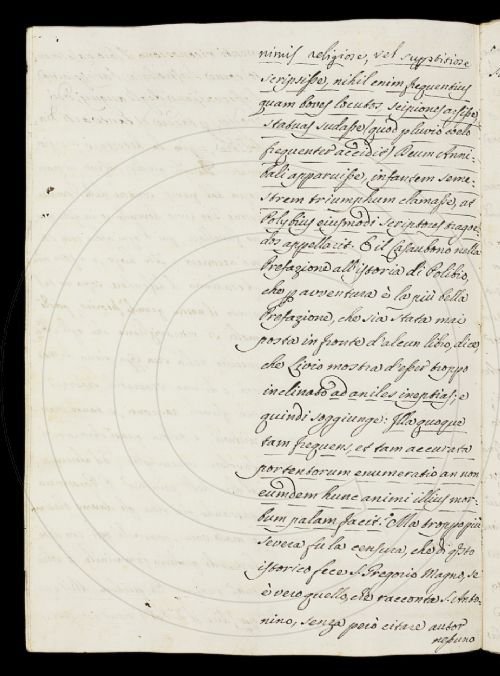 nimis religiose, vel superstitiose
scripsisse, nihil enim frequentius
quam boves locutos scipiones arsisse,
statuas sudasse (quod pluvio coelo
frequenter accidit) Deum Anni-
bali apparuisse, infantem seme-
strem triumphum clamasse, at
Polybius eiusmodi scriptores tragoe-
dos appellavit. E il Casaubono nella
Prefazione all'istoria di Polibio,
che p avventura è la più bella
Prefazione, che sia stata mai
posta in fronte d'alcun libro, dice
che Livio mostra d'esser troppo
inclinato ad aniles ineptias; e
quindi soggiunge: Illa quoque
tam frequens, et tam accurata
portentorum enumeratio an non
eumdem hunc animi illius mor-
bum palam facit. Ma troppo più
severa fu la censura, che di qsto
istorico fece S. Gregorio Magno, se
è vero quello, che racconta S. Anto-
nino, senza però citare autor
nessuno